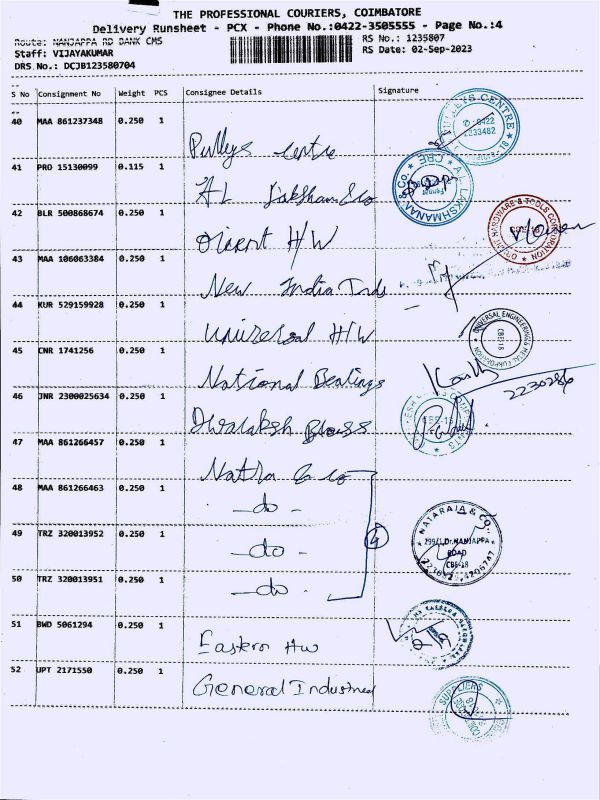 THE PROFESSIONAL COURIERS, COIMBATORE
Delivery Runsheet - PCX - Phone No.:0422-3505555 - Page No.:4
Route: NANJAPPA RD BANK CMS
RS No.: 1235807
Staff: VIJAYAKUMAR
RS Date: 02-Sep-2023
DRS No.: DCJB123580704
S No Consignment No Weight PCS Consignee Details Signature
40 MAA 861237348 0.250 1
Pullys Centre
41 PRO 15130099 0.115 1
AL Lakshman & Co
42 BLR 500868674 0.250 1
Orient H/W
43 MAA 106063384 0.250 1
New India Inds
44 KUR 529159928 0.250 1
Universal H/W
45 CNR 1741256 0.250 1
National Bearings
2230286
46 JNR 2300025634 0.250 1
47 MAA 861266457 0.250 1
& Co
48 MAA 861266463 0.250 1
-do-
49 TRZ 320013952 0.250 1
-do-
4
NATARAJA & CO.
299/1, Dr. NANJAPPA
ROAD
CBE-18
50 TRZ 320013951 0.250 1
-do-
51 BWD 5061294 0.250 1
Eastern HW
52 UPT 2171550 0.250 1
General Industries
SUPPLIERS